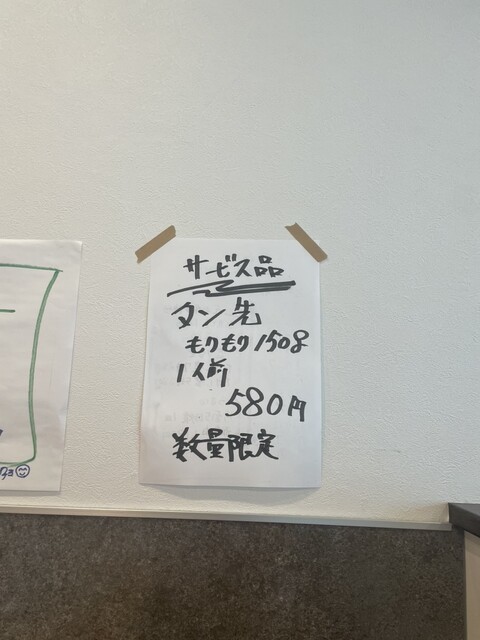 サービス品
タン先
もりもり150g
1人前
580円
数量限定